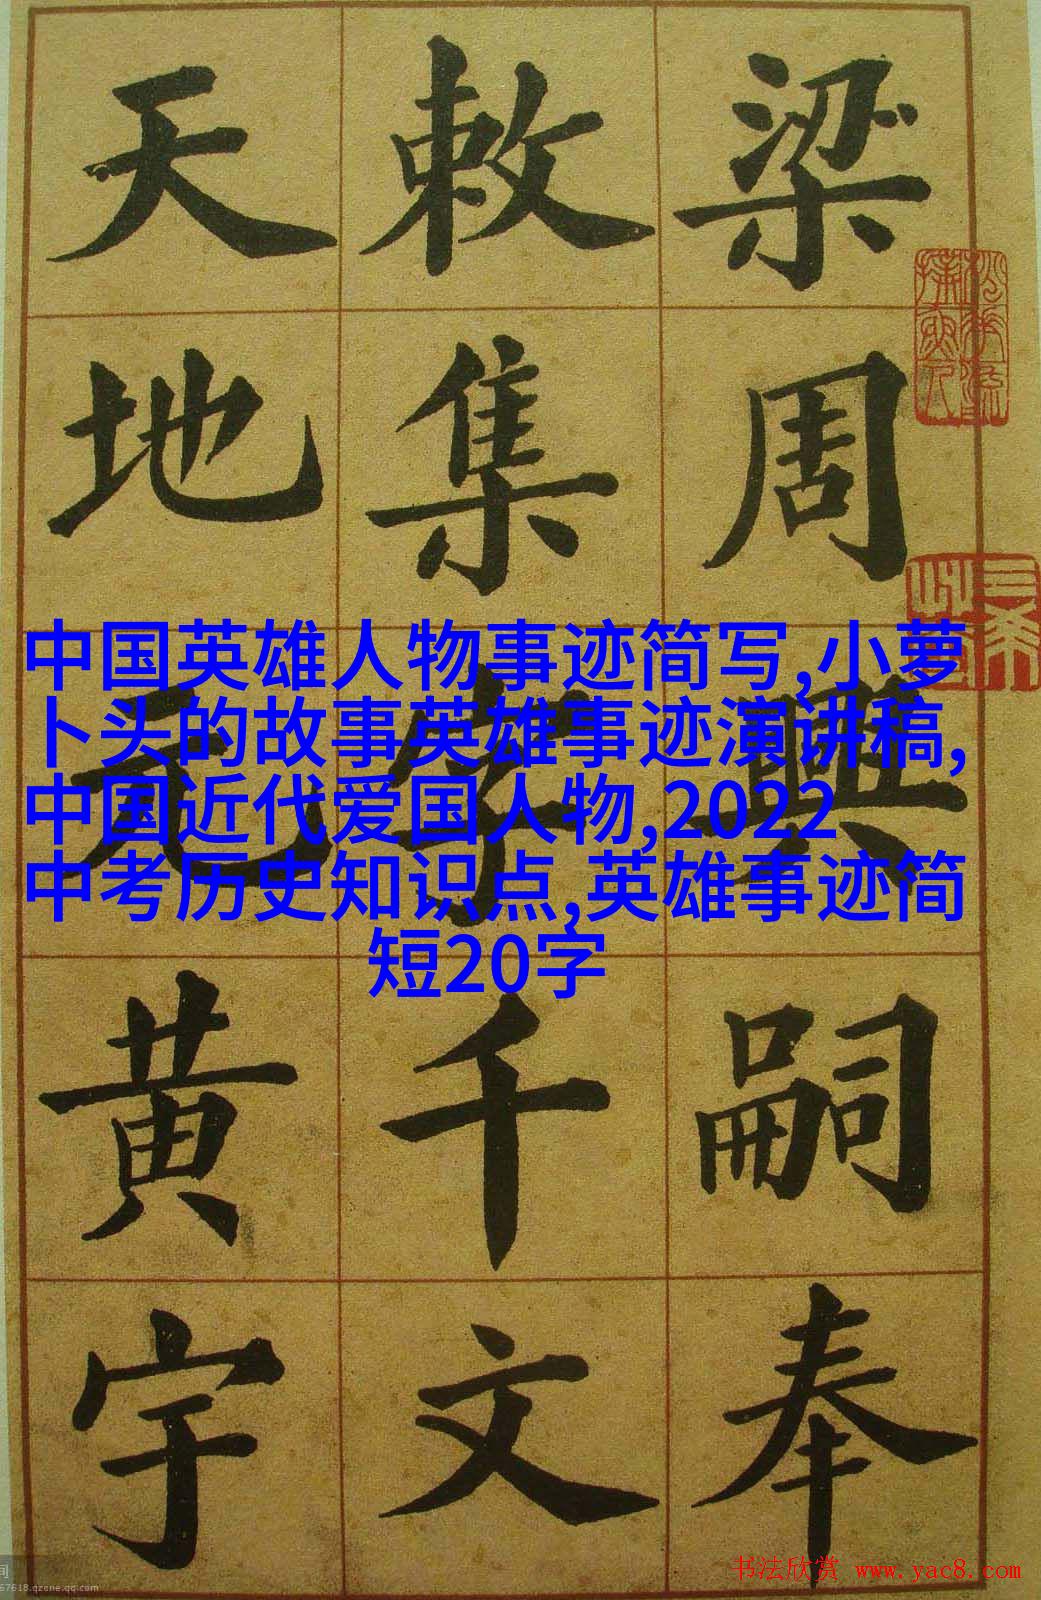 梁周興嗣奉
敕集字千文
天地元黄宇
中国英雄人物事迹简写,小萝
卜头的故事英雄事迹演讲稿,
中国近代爱国人物,2022
中考历史知识点,英雄事迹简
短20字
书法欣赏 www.yac8.com
67618.qzone.qq.com